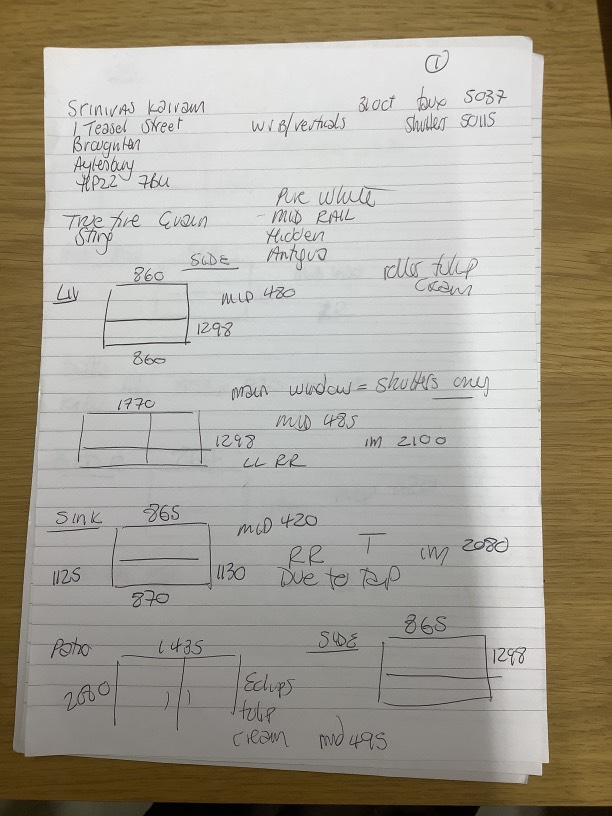 ①
Srinivas Kairam
31 Oct faux 5037
1 Teasel Street
W/B/verticals
shutter 50115
Broughton
Aylesbury
HP22 7BU
Pure White
True fire Grain
- MID RAIL
String
Hidden
SIDE
Antigua
roller tulip
Cream
Liv
860
MID 480
1298
860
main window = shutters only
1770
MID 485
1298
IM 2100
LL RR
Sink
865
MID 420
RR T IM 2080
1125
1130
Due to Tap
870
Patio
1435
SIDE
865
1298
2080
tulip
cream
mid 495